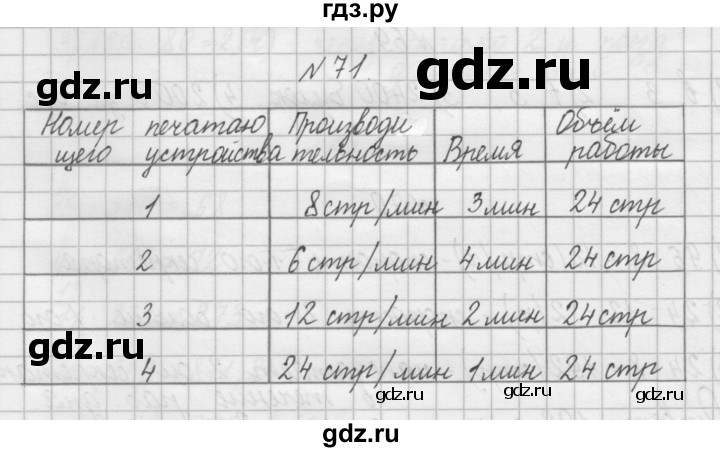 гдз.ру
№71.
gdz.ru
gdz.ru
Номер печатаю Производи Объём
щего устройства тельность Время работы
1 8 стр/мин 3 мин 24 стр
gdz.ru
gdz.ru
2 6 стр/мин 4 мин 24 стр
3 12 стр/мин 2 мин 24 стр
gdz.ru
4 24 стр/мин 1 мин 24 стр
gdz.ru
gdz.ru
gdz.ru